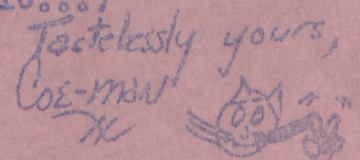 Tastelessly yours,
Coe-man